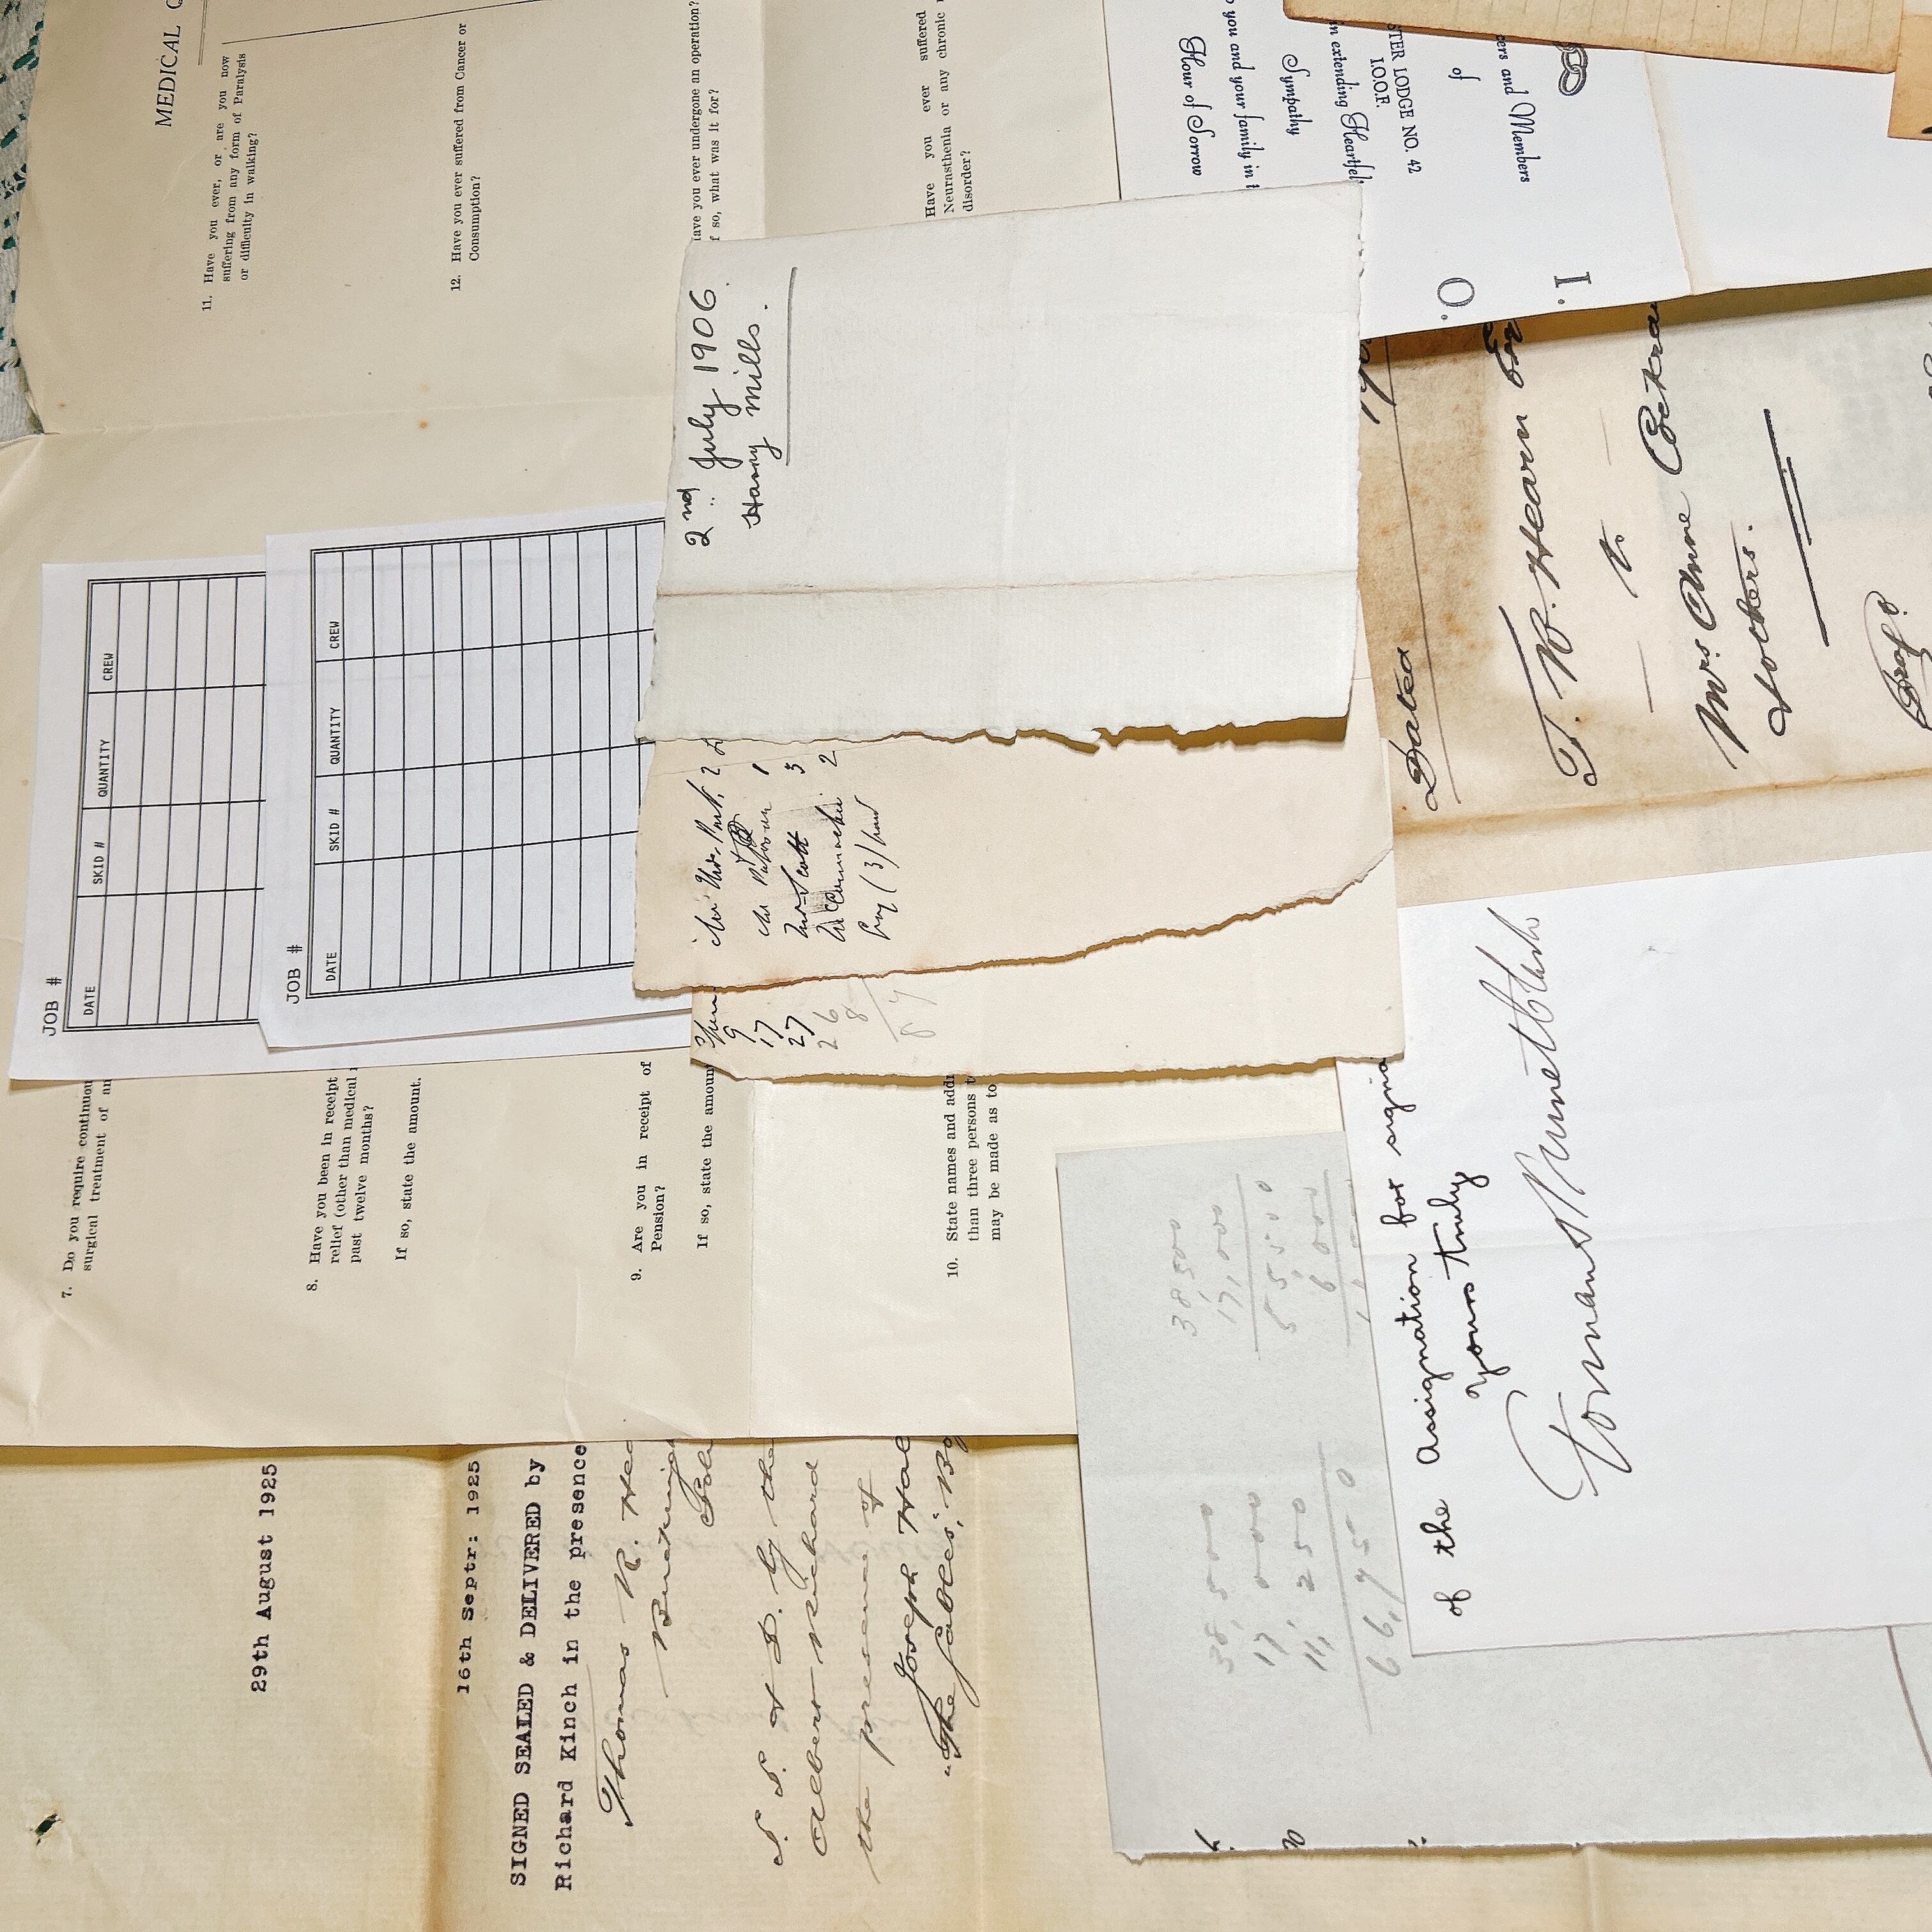 MEDICAL
11. Have you ever, or are you now
suffering from any form of Paralysis
or difficulty in walking?
12. Have you ever suffered from Cancer or
Consumption?
have you ever undergone an operation?
f so, what was it for?
Have you ever suffered
Neurasthenia or any chronic
disorder?
7. Do you require continuou
surgical treatment of an
8. Have you been in receipt
relief (other than medical
past twelve months?
If so, state the amount.
9. Are you in receipt of
Pension?
If so, state the amoun
10. State names and addr
than three persons t
may be made as to
JOB #
DATE SKID # QUANTITY CREW
JOB #
DATE SKID # QUANTITY CREW
2nd July 1906
Harry Mills.
1
Mr Scott 3
2
9
17
27
26
8
87
29th August 1925
16th Septr: 1925
SIGNED SEALED & DELIVERED by
Richard Kinch in the presence
Thomas R. Hea
S. S. & D. by the
Albert Richard
the presence of
Joseph Hal
"The Gables", Bo
38500
17,000
55,500
6000
38,5000
17,0000
11,250
66,750
of the Assignation for signa
yours truly
I.
O.
cers and Members
of
STER LODGE NO. 42
I.O.O.F.
in extending Heartfel
Sympathy
o you and your family in
Hour of Sorrow
Dated 190
T. W. Hearn
to
Mrs Anne